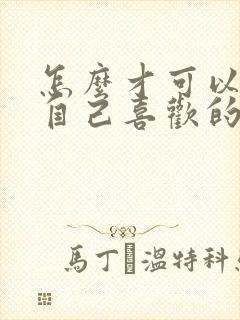 怎麼才可以
自己喜歡的
馬丁·溫特科